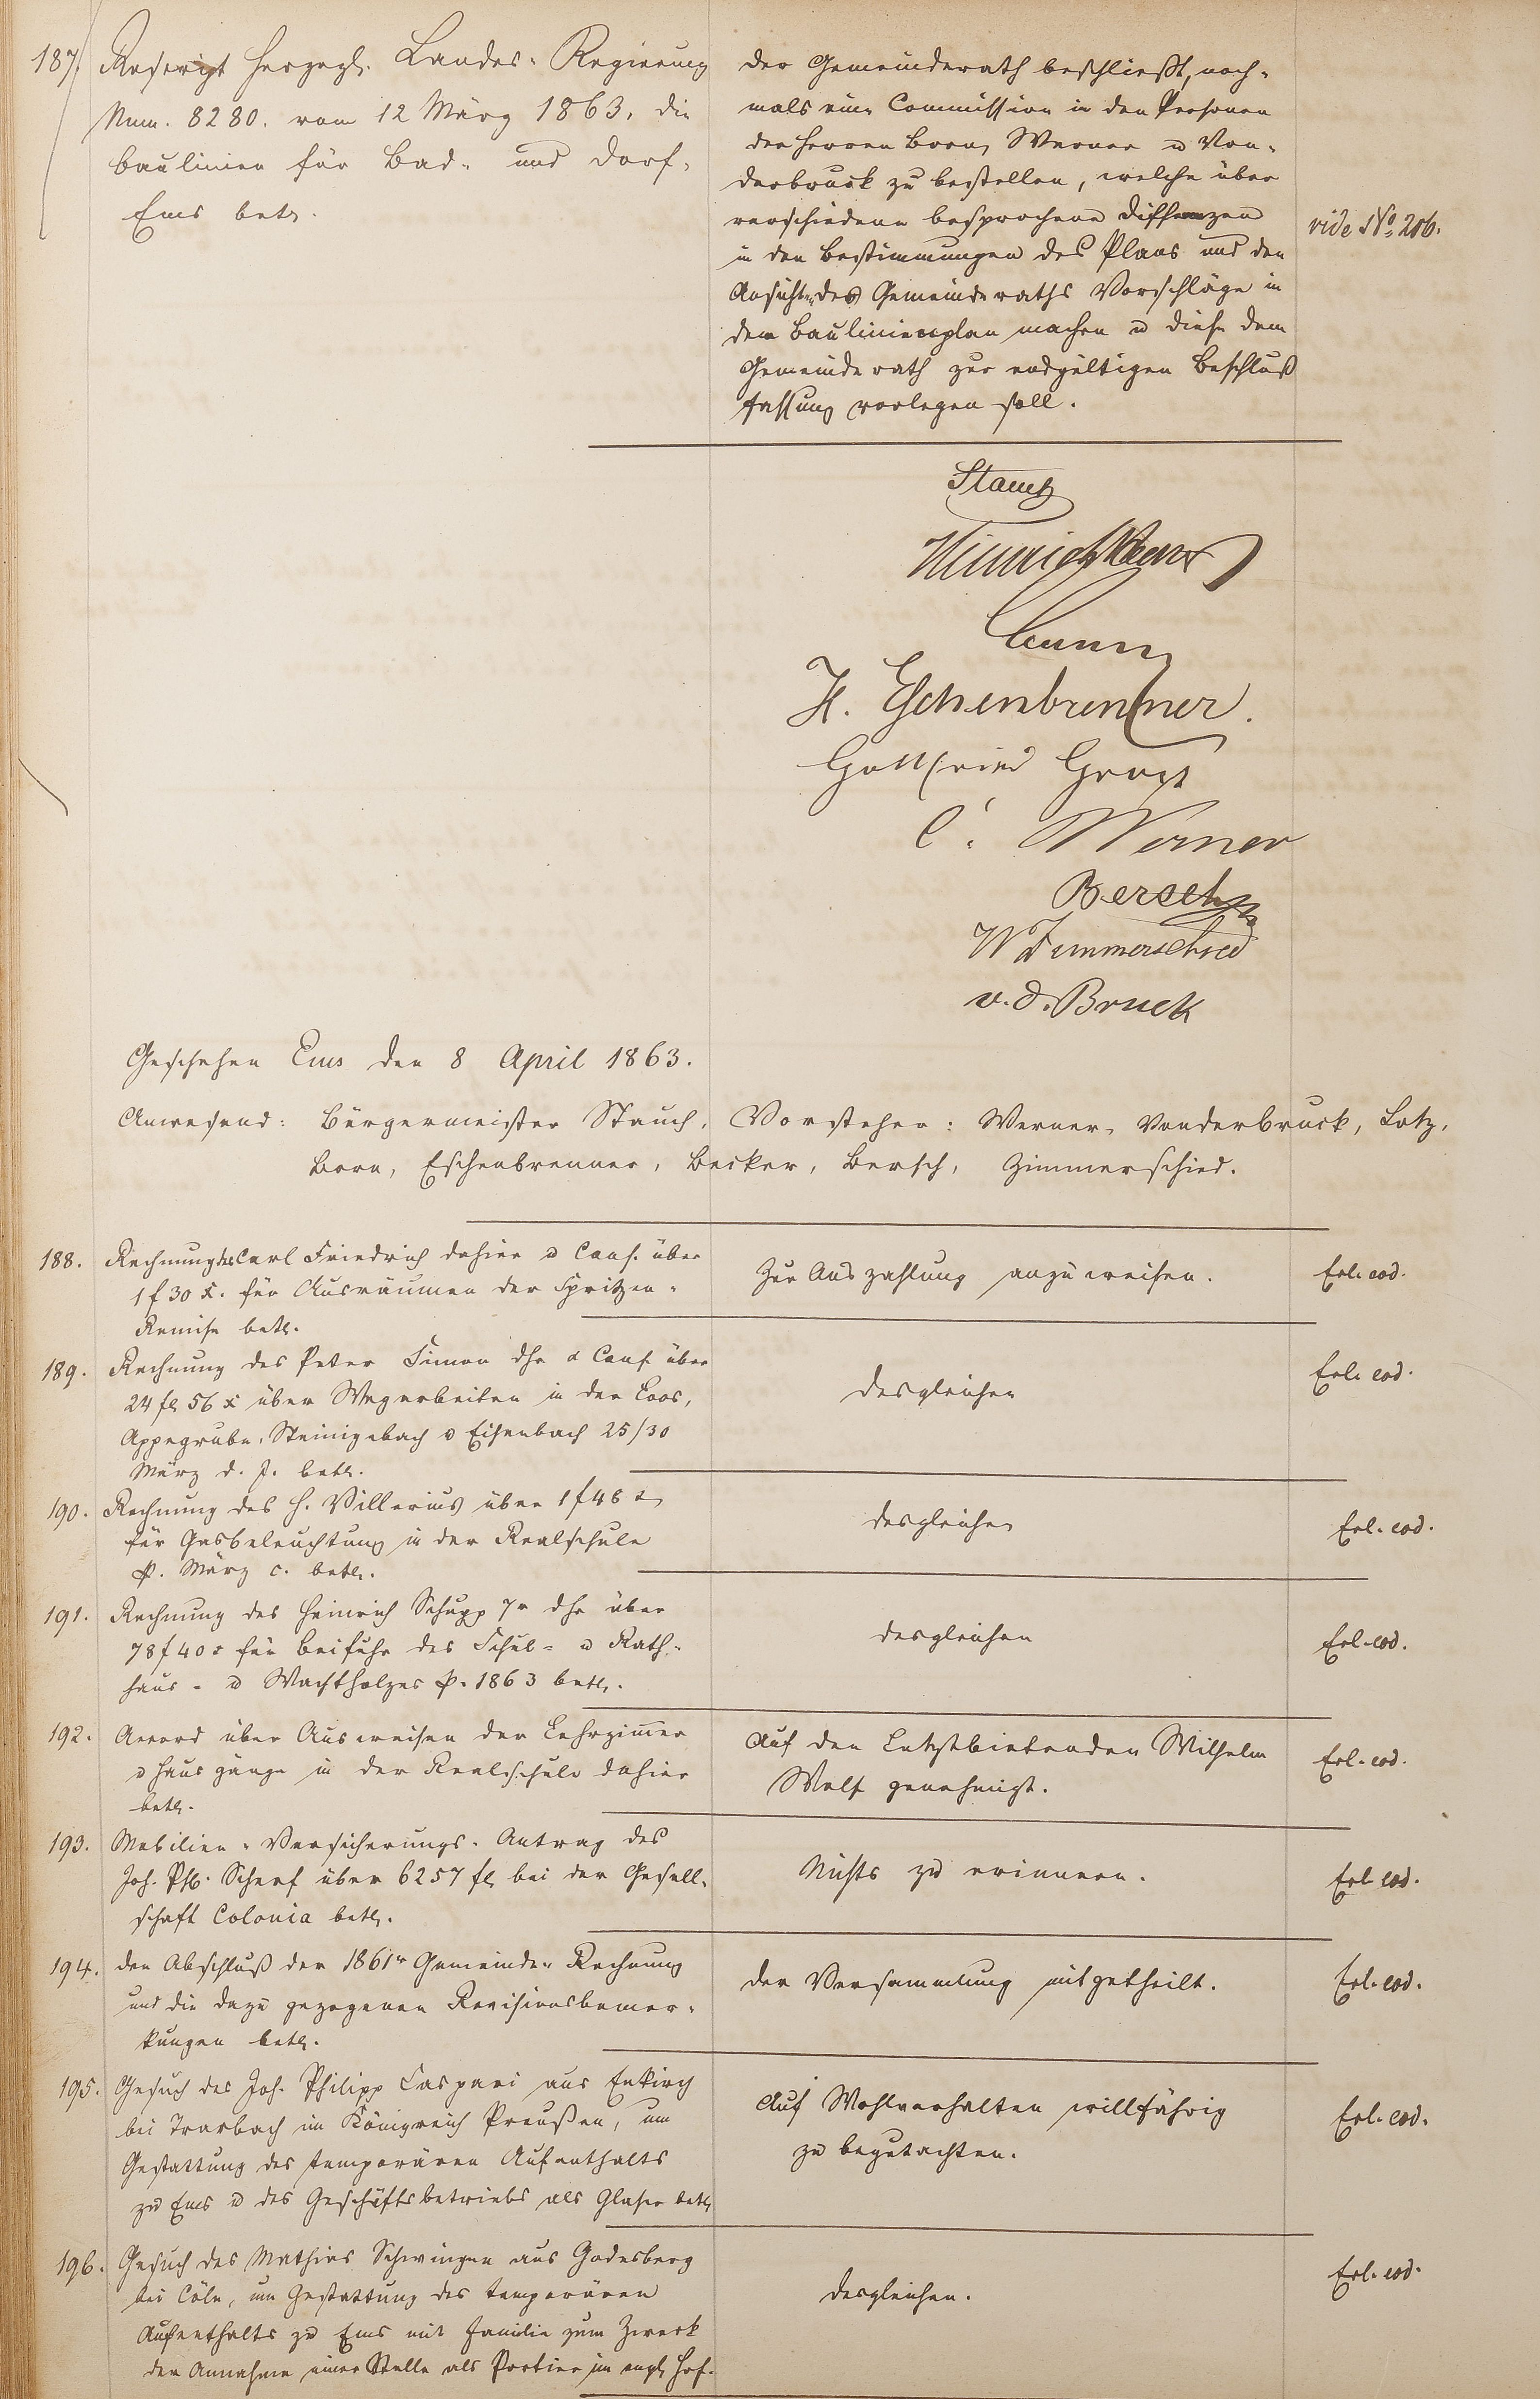 187. Rescript Herzogl. Landes-Regierung
Num. 8280. vom 12 März 1863, die
Baulinien für Bad- und Dorf-
Ems betr.
Der Gemeinderath beschließt, noch-
mals eine Commission in den Personen
der Herren Born, Werner u Von-
derbruck zu bestellen, welche über
verschiedene besprochene Differenzen
in den Bestimmungen des Plans und den
Ansichten des Gemeinderaths Vorschläge in
dem Baulinienplan machen u diese dem
Gemeinderath zur endgültigen Beschluß
fassung vorlegen soll.
vide No. 206.
Stauch
H. Eschenbrenner.
Gottfried
C. Werner
Bersch
W Zimmerschied
v. d. Bruck
Geschehen Ems den 8 April 1863.
Anwesend: Bürgermeister Stauch, Vorsteher: Werner, Vonderbruck, Lotz,
Born, Eschenbrenner, Becker, Bersch, Zimmerschied.
188. Rechnung des Carl Friedrich dahier u Cons. über
1 f 30 x. für Ausräumen der Spritzen-
Remise betr.
Zur Auszahlung anzuweisen.
Erl. eod.
189. Rechnung des Peter Simon dhr & Cons. über
24 fl 56 x über Wegarbeiten in der Loos,
Appegrube, Steinigebach u Eisenbach 25/30
März d. J. betr.
desgleichen
Erl. eod.
190. Rechnung des H. Villerius über 1 f 46 x
für Gasbeleuchtung in der Realschule
p. März c. betr.
desgleichen
Erl. eod.
191. Rechnung des Heinrich Schupp 7r dhr über
78 f 40 x für Beifuhr des Schul- u Rath-
haus- u Wachtholzes p. 1863 betr.
desgleichen
Erl. eod.
192. Accord über Ausweisen der Lehrzimmer
u Hausgänge in der Realschule dahier
betr.
Auf den Letztbietenden Wilhelm
Wolf genehmigt.
Erl. eod.
193. Mobilien-Versicherungs-Antrag des
Joh. Ph. Scherf über 6257 fl. bei der Gesell-
schaft Colonia betr.
Nichts zu erinnern.
Erl eod.
194. Den Abschluß der 1861r Gemeinde-Rechnung
und die dazu gezogenen Revisionsbemer-
kungen betr.
Der Versammlung mitgetheilt.
Erl. eod.
195. Gesuch des Joh. Philipp Caspari aus Enkirch
bei Trarbach im Königreich Preußen, um
Gestattung des temporären Aufenthalts
zu Ems u des Geschäftsbetriebs als Glaser betr
Auf Wohlverhalten willfährig
zu begutachten.
Erl. eod.
196. Gesuch des Mathias Schwingen aus Godesberg
bei Cöln, um Gestattung des temporären
Aufenthalts zu Ems mit Familie zum Zweck
der Annahme einer Stelle als Portier im engl. Hof.
desgleichen.
Erl. eod.